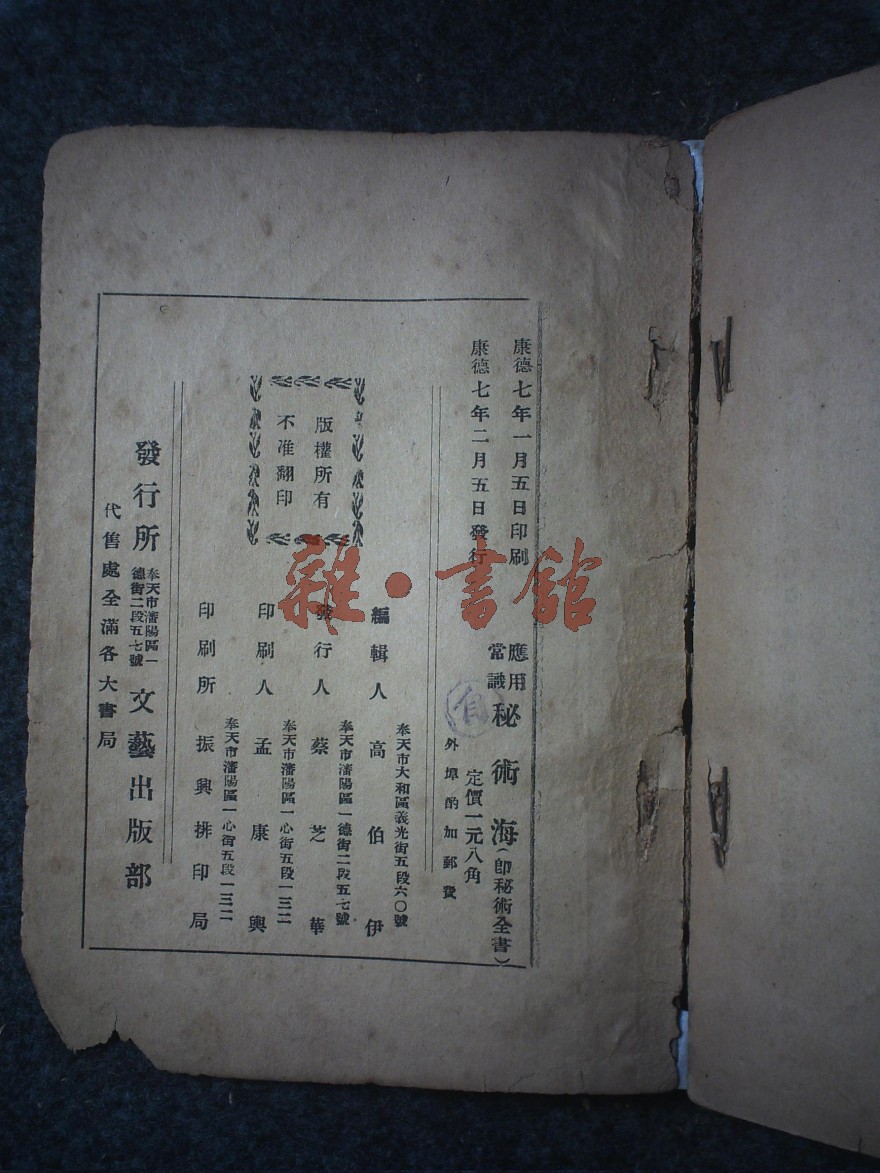 康德七年一月五日印刷
康德七年二月五日發行
應用
常識
秘術海(即秘術全書)
定價一元八角
外埠酌加郵費
版權所有
不准翻印
奉天市大和區義光街五段六〇號
編輯人 高伯伊
奉天市瀋陽區一德街二段五七號
發行人 蔡芝華
奉天市瀋陽區一心街五段一三二
印刷人 孟康興
奉天市瀋陽區一心街五段一三二
印刷所 振興排印局
發行所
奉天市瀋陽區一
德街二段五七號
文藝出版部
代售處全滿各大書局
雜·書館